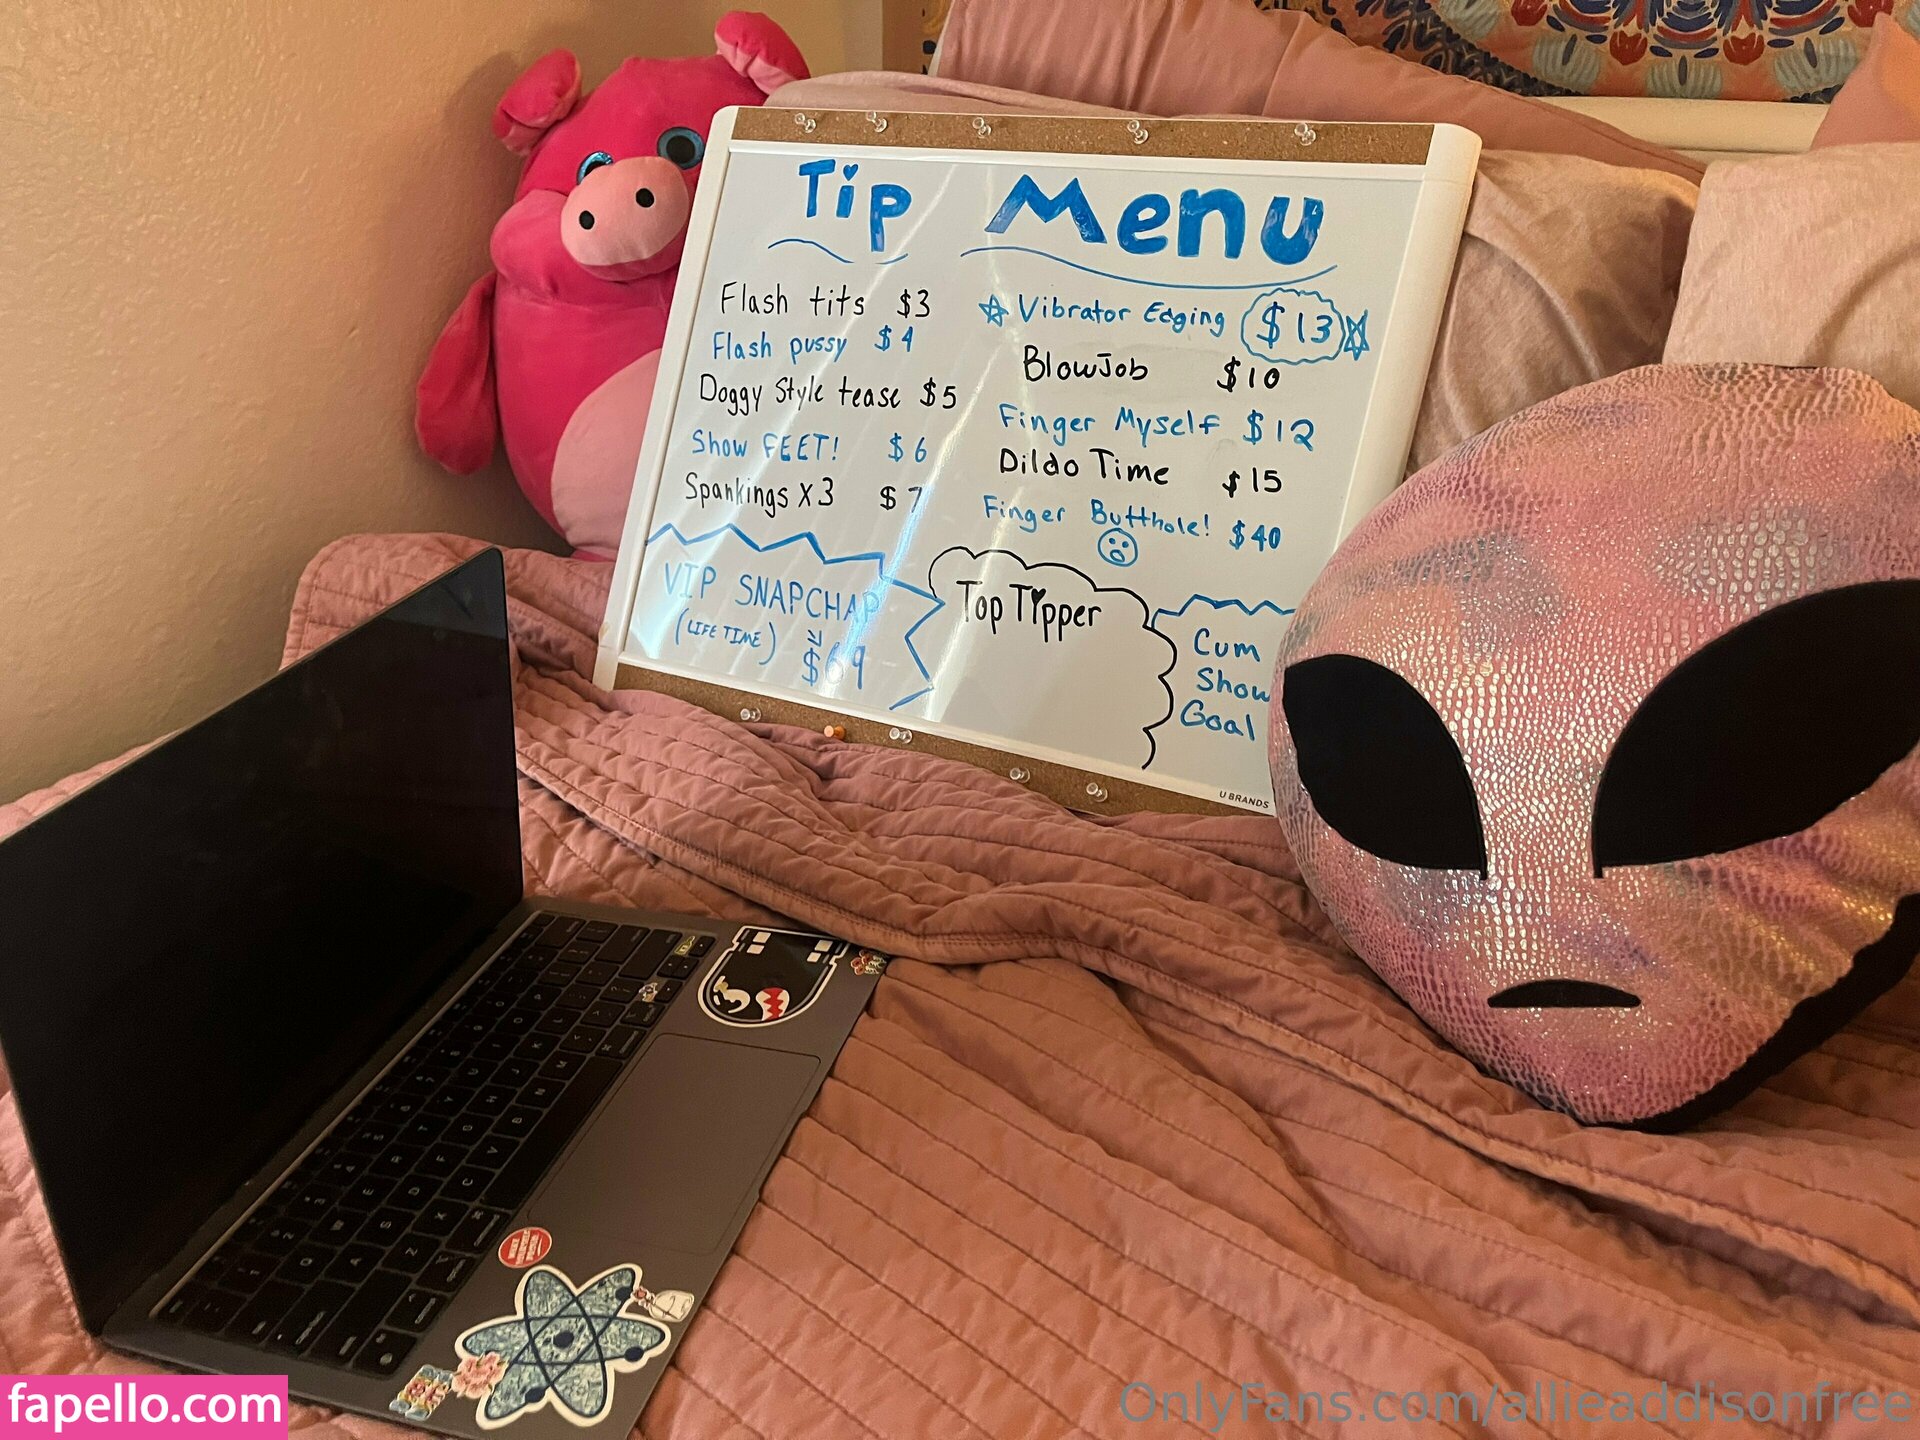 Tip Menu
Flash tits $3
Flash pussy $4
Doggy Style tease $5
Show FEET! $6
Spankings x3 $7
Vibrator Edging $13
BlowJob $10
Finger Myself $12
Dildo Time $15
Finger Butthole! $40
VIP SNAPCHAP
(LIFE TIME) $69
Top Tipper
Cum
Show
Goal
U BRANDS
fapello.com
OnlyFans.com/allieaddisonfree